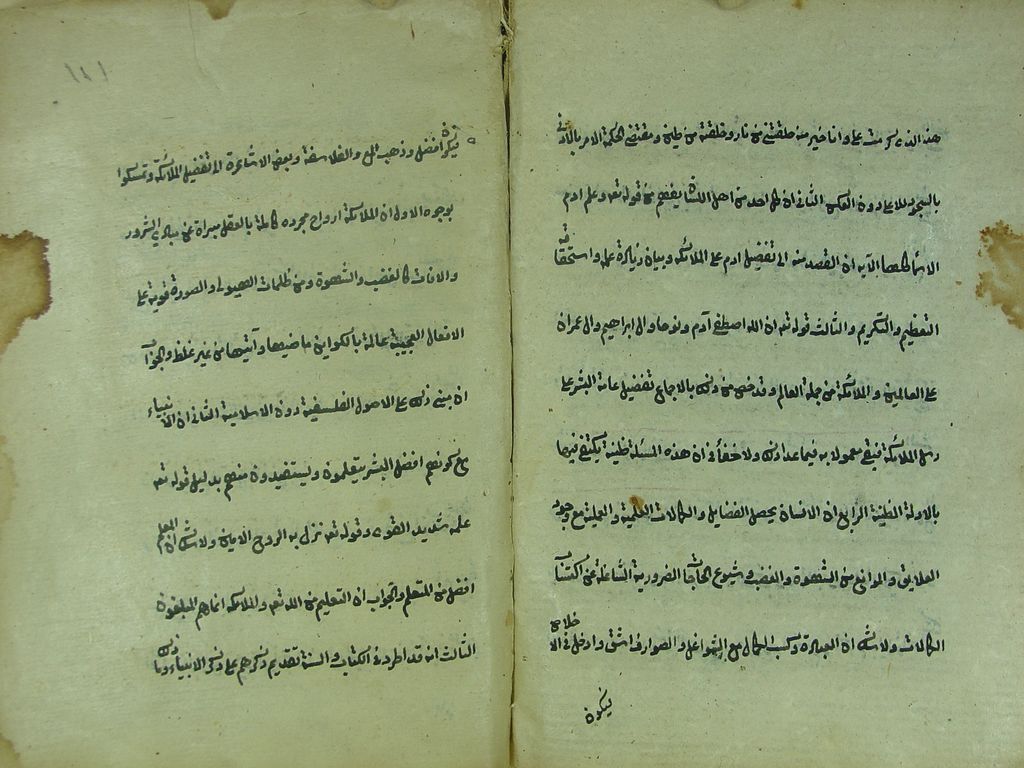 هذا الذى كرمت على وانا خير منه خلقتنى من نار وخلقته من طين ومقتضى الحكمة الامر بالادنى
بالسجود للاعلى دون العكس الثانى ان كل احد من اهل اللسان يفهم من قوله تعه وعلم ادم
الاسماء كلها الآيه ان القصد منه الى تفضيل ادم على الملائكه وبيان زيادة علمه واستحقاقه
التعظيم والتكريم والثالث قوله تعه ان الله اصطفى آدم ونوحا وال ابراهيم وال عمران
على العالمين والملائكة من جملة العالم وقد خص من ذلك بالاجماع تفضيل عامة البشر على
رسل الملائكة فبقى معمولا به فيما عدا ذلك ولا خفأ فى ان هذه المسئلة ظنية يكتفى فيها
بالادلة الظنية الرابع ان الانسان يحصل الفضايل والكمالات العلمية والعملية مع وجود
العلايق والموانع من الشهوة والغضب وشيوع الحاجات الضرورية الشاغلة عن اكتساب
الكمالات ولا شك ان العبادة وكسب الكمال مع الشواغل والصوارف اشق وادخل فى الاخلاص
فيكون
فيكون افضل وذهب المع والفلاسفة وبعض الاشاعرة الى تفضيل الملائكة وتمسكوا
بوجوه الاول ان الملائكة ارواح مجرده كاملة بالعقل مبراة عن مبادي الشرور
والافات كالغضب والشهوة ومن ظلمات الهيولى والصورة قوية على
الافعال العجيبة عالمة بالكواين ماضيها وآتيها من غير غلط والجواب
ان مبنى ذلك على الاصول الفلسفية دون الاسلامية الثانى ان الانبياء
مع كونهم افضل البشر يتعلمون ويستفيدون منهم بدليل قوله تعه
علمه شديد القوى وقوله تعه نزل به الروح الامين ولا شك ان المعلم
افضل من المتعلم والجواب ان التعليم من الله تعه والملائكة انما هم المبلغون
الثالث انه قد اطرد فى الكتاب والسنة تقديم ذكرهم على ذكر الانبياء وما ذلك